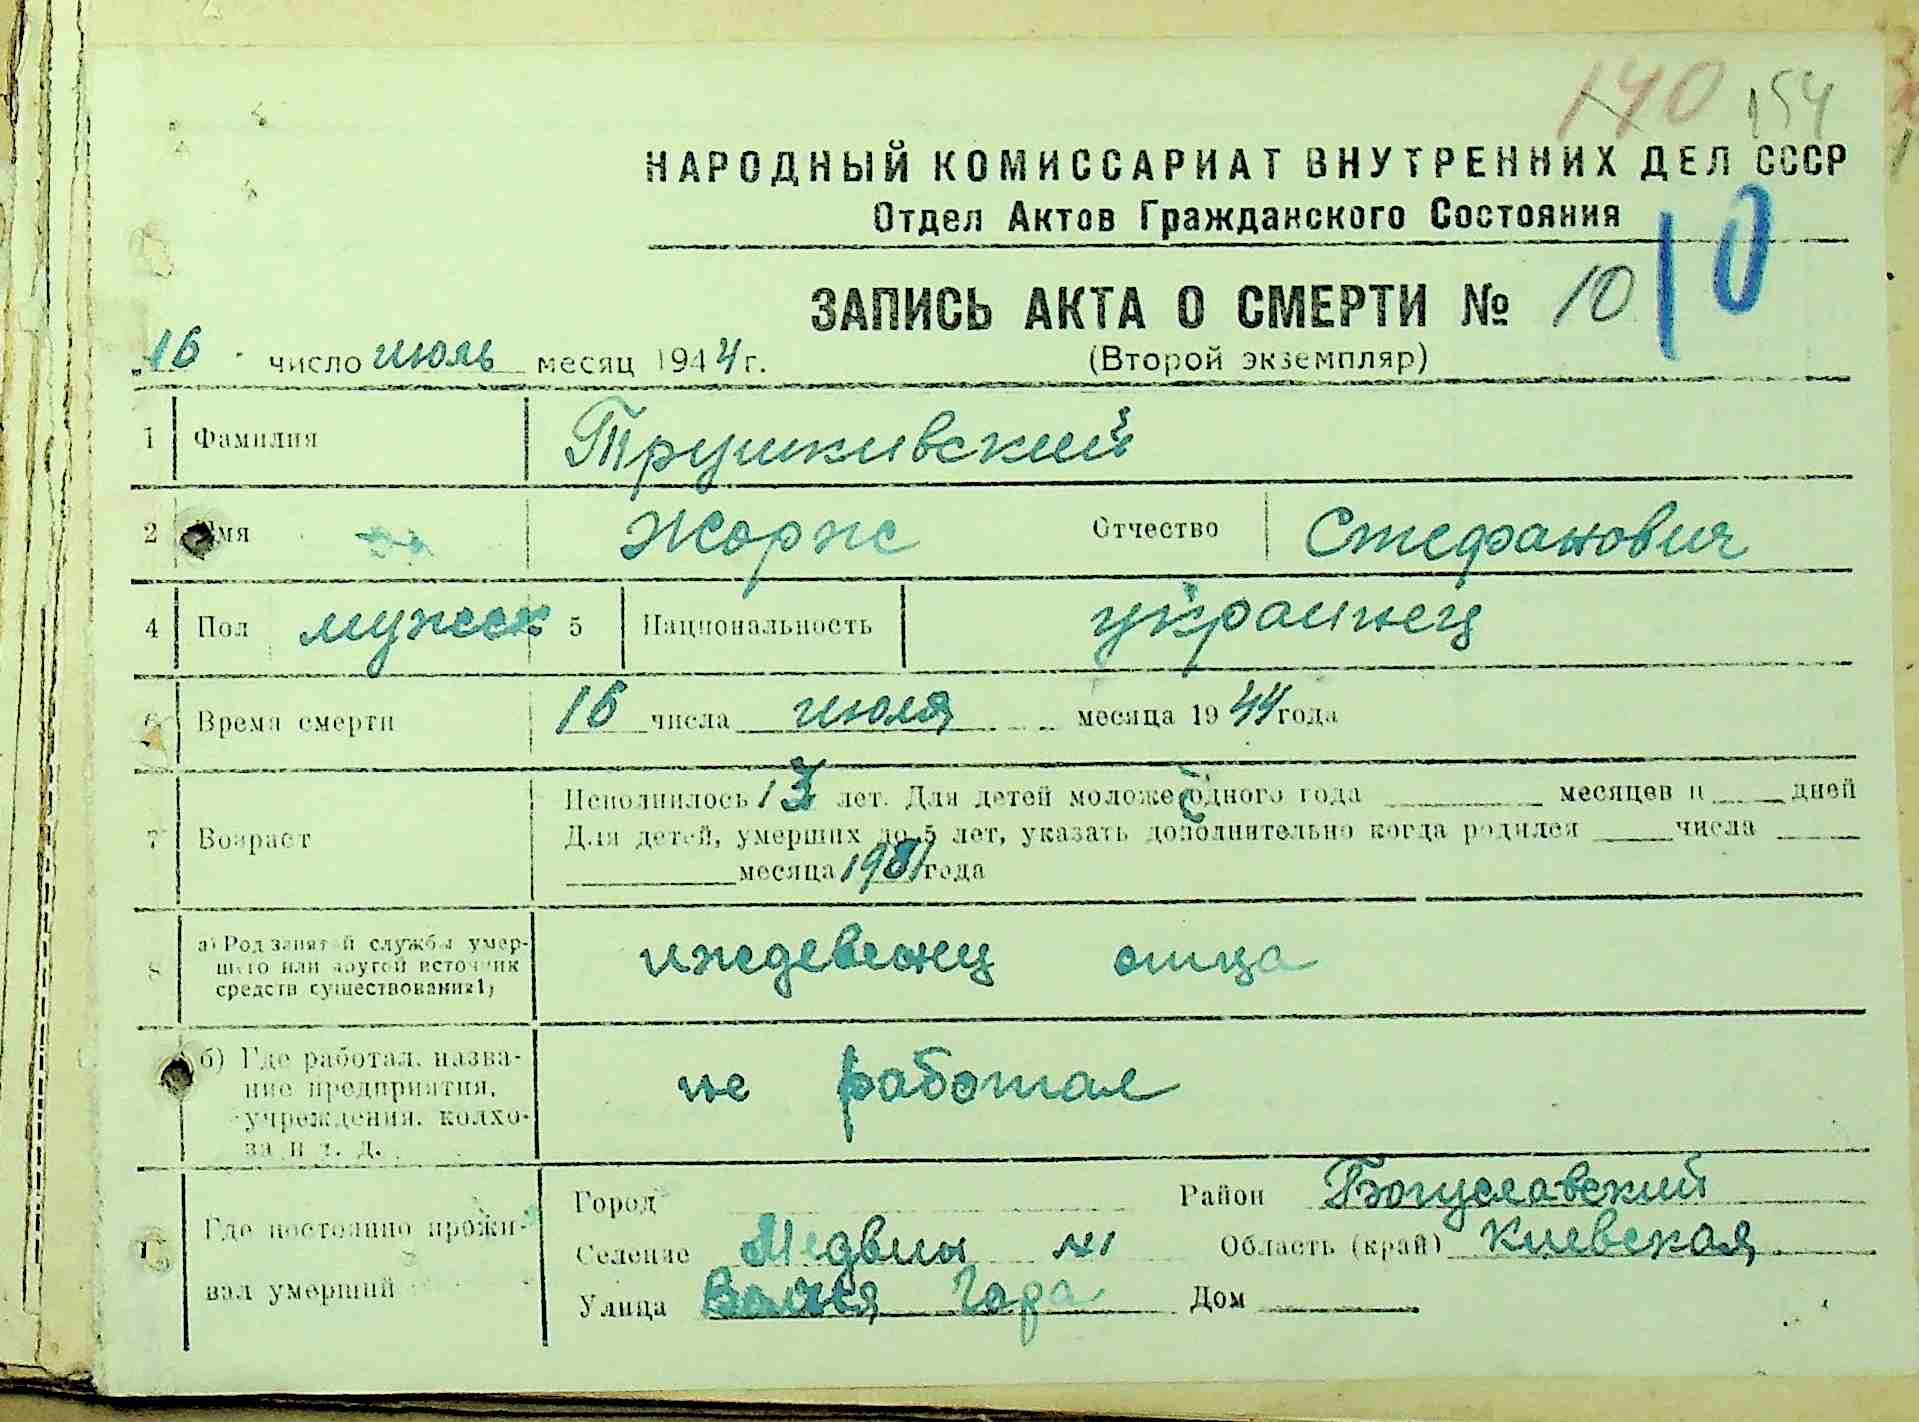 140 154
НАРОДНЫЙ КОМИССАРИАТ ВНУТРЕННИХ ДЕЛ СССР
Отдел Актов Гражданского Состояния
10
ЗАПИСЬ АКТА О СМЕРТИ № 10
16 число июль месяц 1944 г.
(Второй экземпляр)
1 Фамилия Трушкивский
2 Имя Жорж Отчество Стефанович
4 Пол мужск 5 Национальность украинец
6 Время смерти 16 числа июля месяца 1944 года
7 Возраст
Исполнилось 13 лет. Для детей моложе одного года месяцев и дней
Для детей, умерших до 5 лет, указать дополнительно когда родился числа
месяца 1931 года
8 а) Род занятий службы умер-
шего или другой источник
средств существования1)
иждевенец отца
б) Где работал, назва-
ние предприятия,
учреждения, колхо-
за и т. д.
не работал
Где постоянно прожи-
вал умерший
Город Район Богуславский
Селение Медвин №1 Область (край) Киевская
Улица Гора Дом